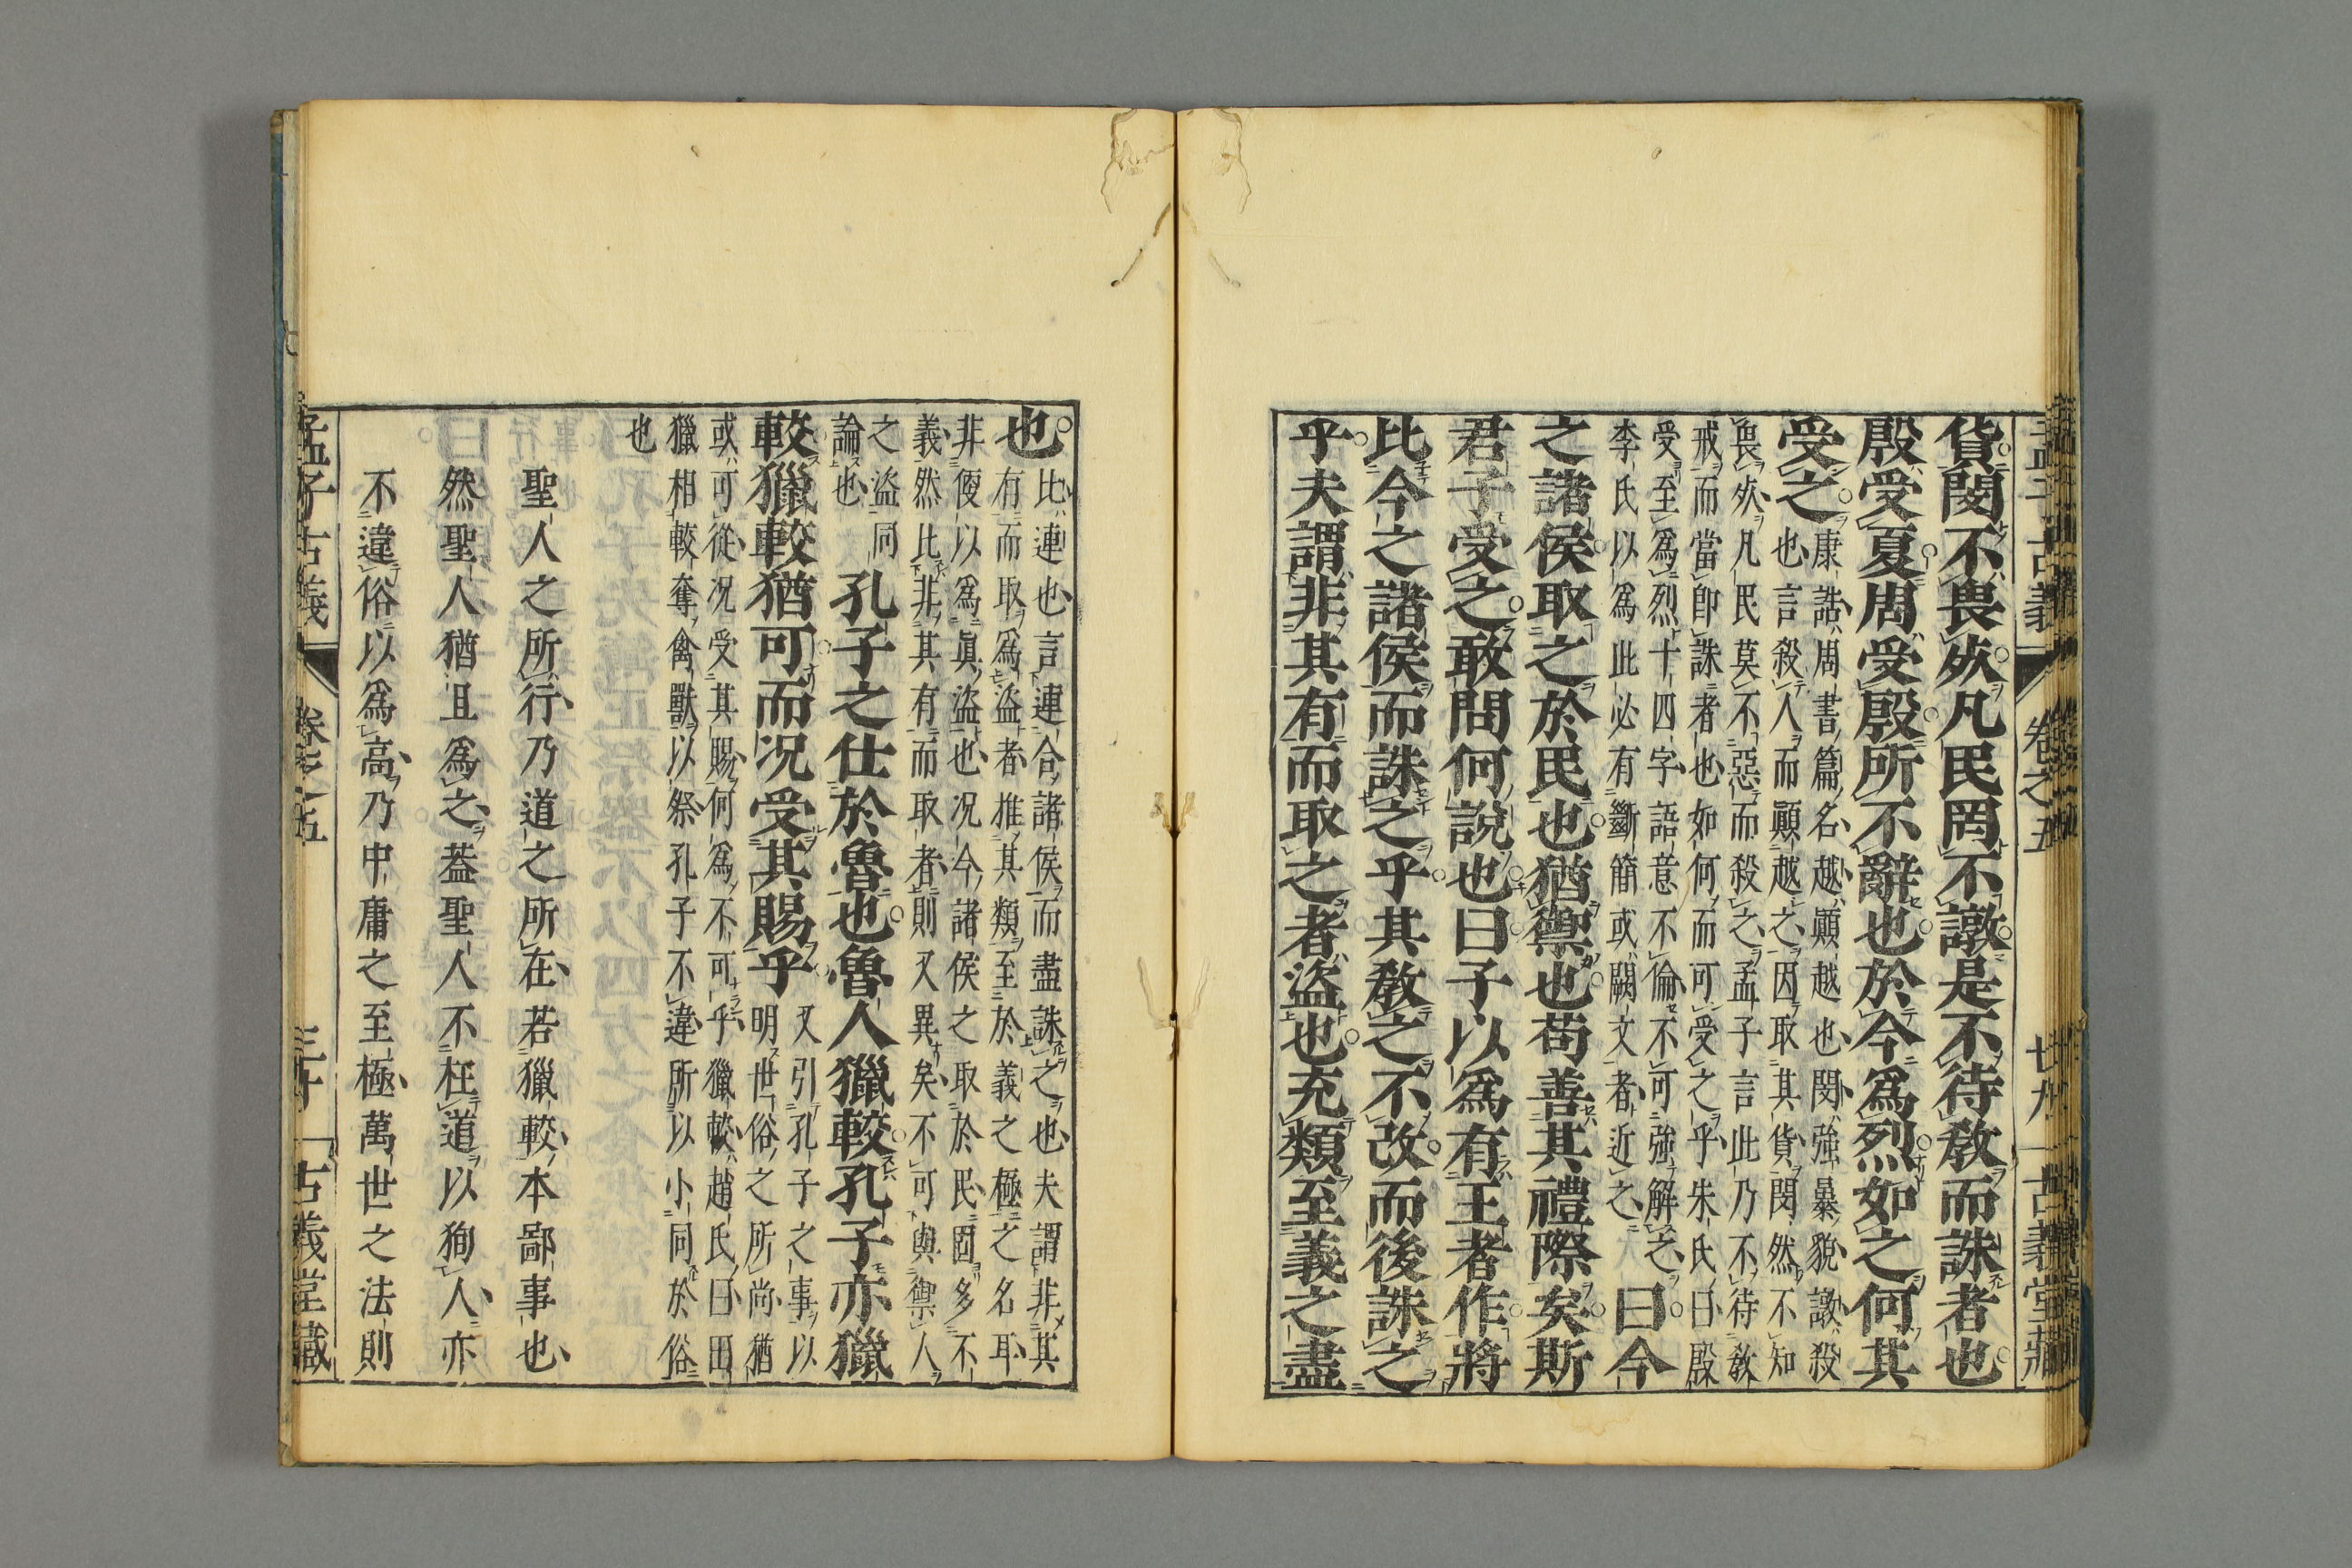 孟子古義 卷之五 廿九 古義堂藏
貨閔不畏死凡民罔不譈是不待教而誅者也
殷受夏周受殷所不辭也於今爲烈如之何其
受之
康誥周書篇名越顚越也閔強暴貌譈殺
也言殺人而顚越之因取其貨閔然不知
畏死凡民莫不惡而殺之孟子言此乃不待教
戒而當卽誅者也如何而可受之乎朱氏曰殷
受至爲烈十四字語意不倫不可強解之
李氏以爲此必有斷簡或闕文者近之
曰今
之諸侯取之於民也猶禦也苟善其禮際矣斯
君子受之敢問何說也曰子以爲有王者作將
比今之諸侯而誅之乎其教之不改而後誅之
乎夫謂非其有而取之者盜也充類至義之盡
也
比連也言連合諸侯而盡誅之也夫謂非其
有而取爲盜者推其類至於義之極之名耳
非便以爲眞盜也况今諸侯之取於民固多不
義然比非其有而取者則又異矣不可與禦人
之盜同
論也
孔子之仕於魯也魯人獵較孔子亦獵
較獵較猶可而况受其賜乎
又引孔子之事以
明世俗之所尚猶
或可從况受其賜何爲不可乎獵較趙氏曰田
獵相較奪禽獸以祭孔子不違所以小同於俗
也
聖人之所行乃道之所在若獵較本鄙事也
然聖人猶且爲之蓋聖人不枉道以狥人亦
不違俗以爲高乃中庸之至極萬世之法則
孟子古義 卷之五 三十 古義堂藏